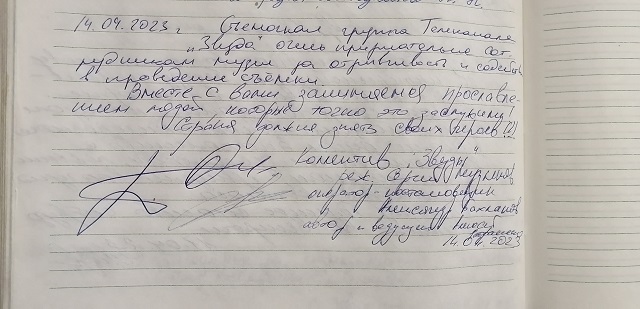 14.04.2023 г. Съемочная группа Телеканала
"Звезда" очень признательна сот-
рудникам музея за отзывчивость и содейств
в проведении съёмки.
Вместе с Вами занимаемся прославле-
нием людей которые точно это заслужили!
Страна должна знать своих героев!!!
Коллектив "Звезды"
реж. Сергей
оператор-постановщик
Александр
автор и ведущий
14.04.2023